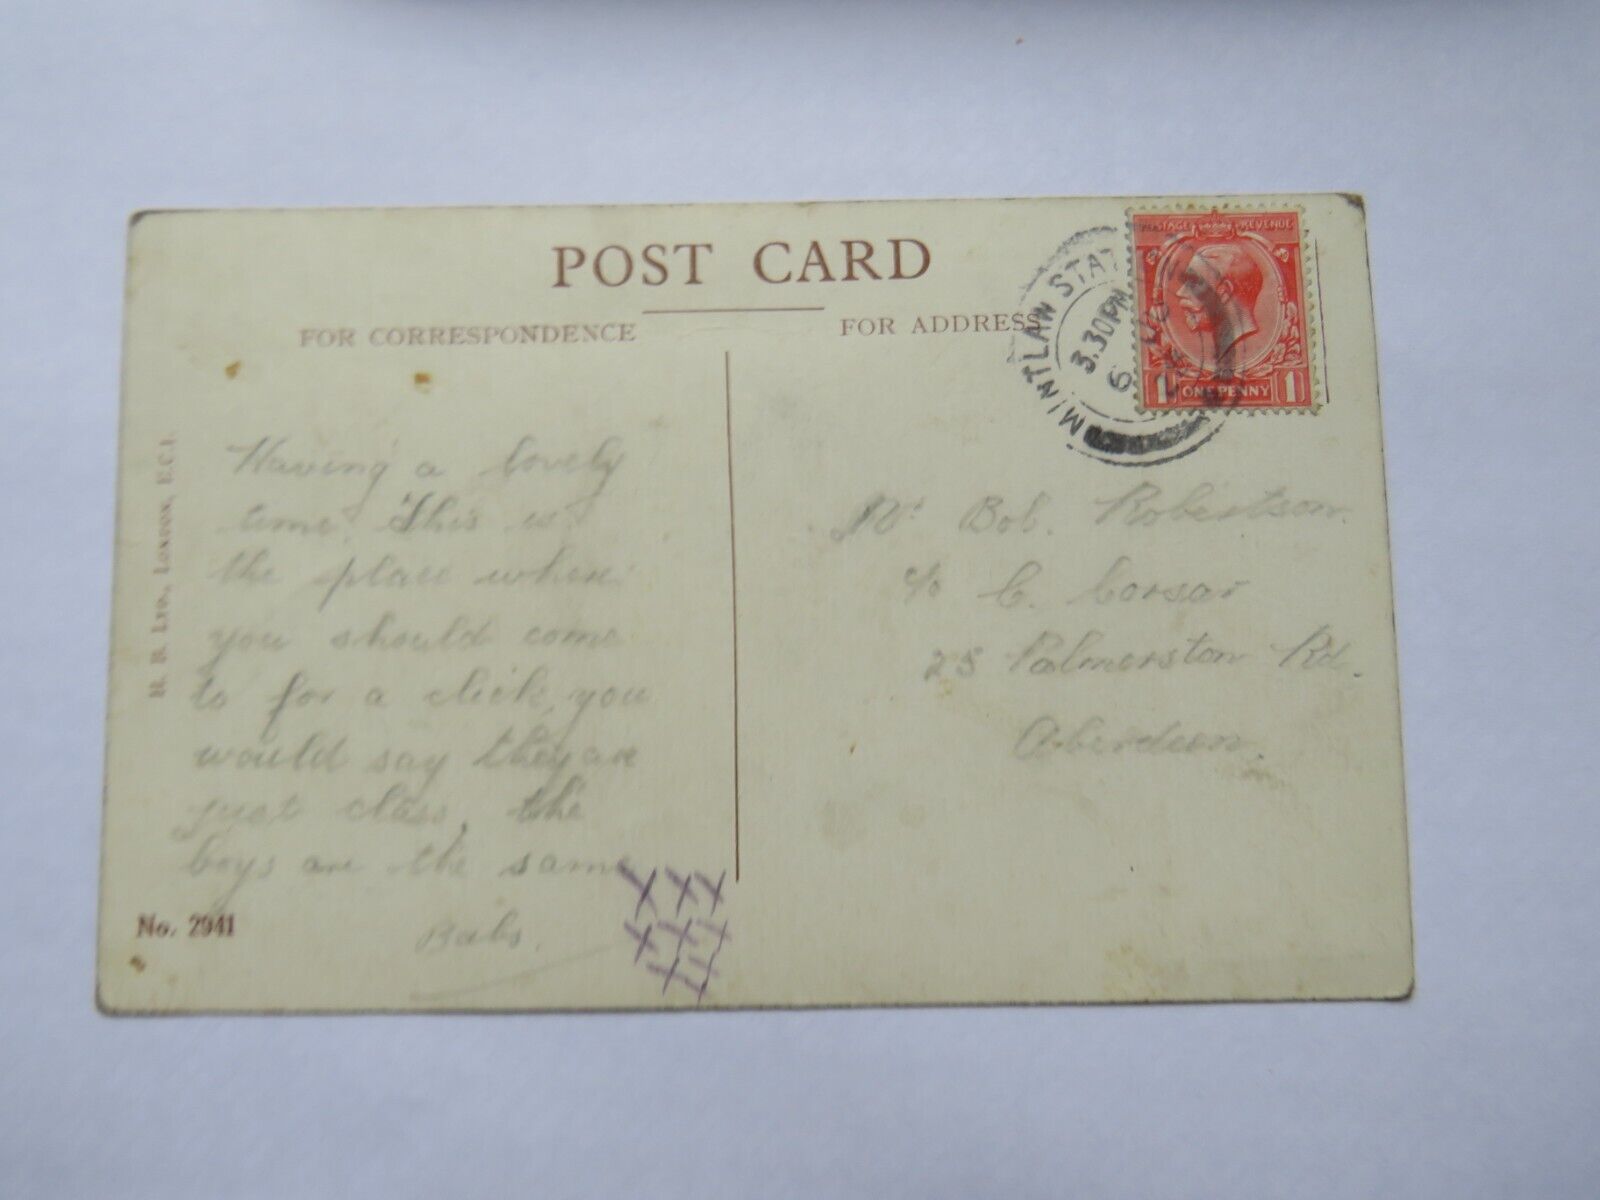 POST CARD
FOR CORRESPONDENCE
FOR ADDRESS
MINTLAW STAT
3.30PM
6
POSTAGE REVENUE
1 ONE PENNY 1
H. B. LTD., LONDON, E.C.1.
Having a lovely
time. This is
the place where
you should come
to for a click, you
would say they are
just class, the
boys are the same
Babs.
XXX
XXX
XX
No. 2941
Mr Bob. Robertson.
c/o C. Corsar
25 Palmerston Rd.
Aberdeen.